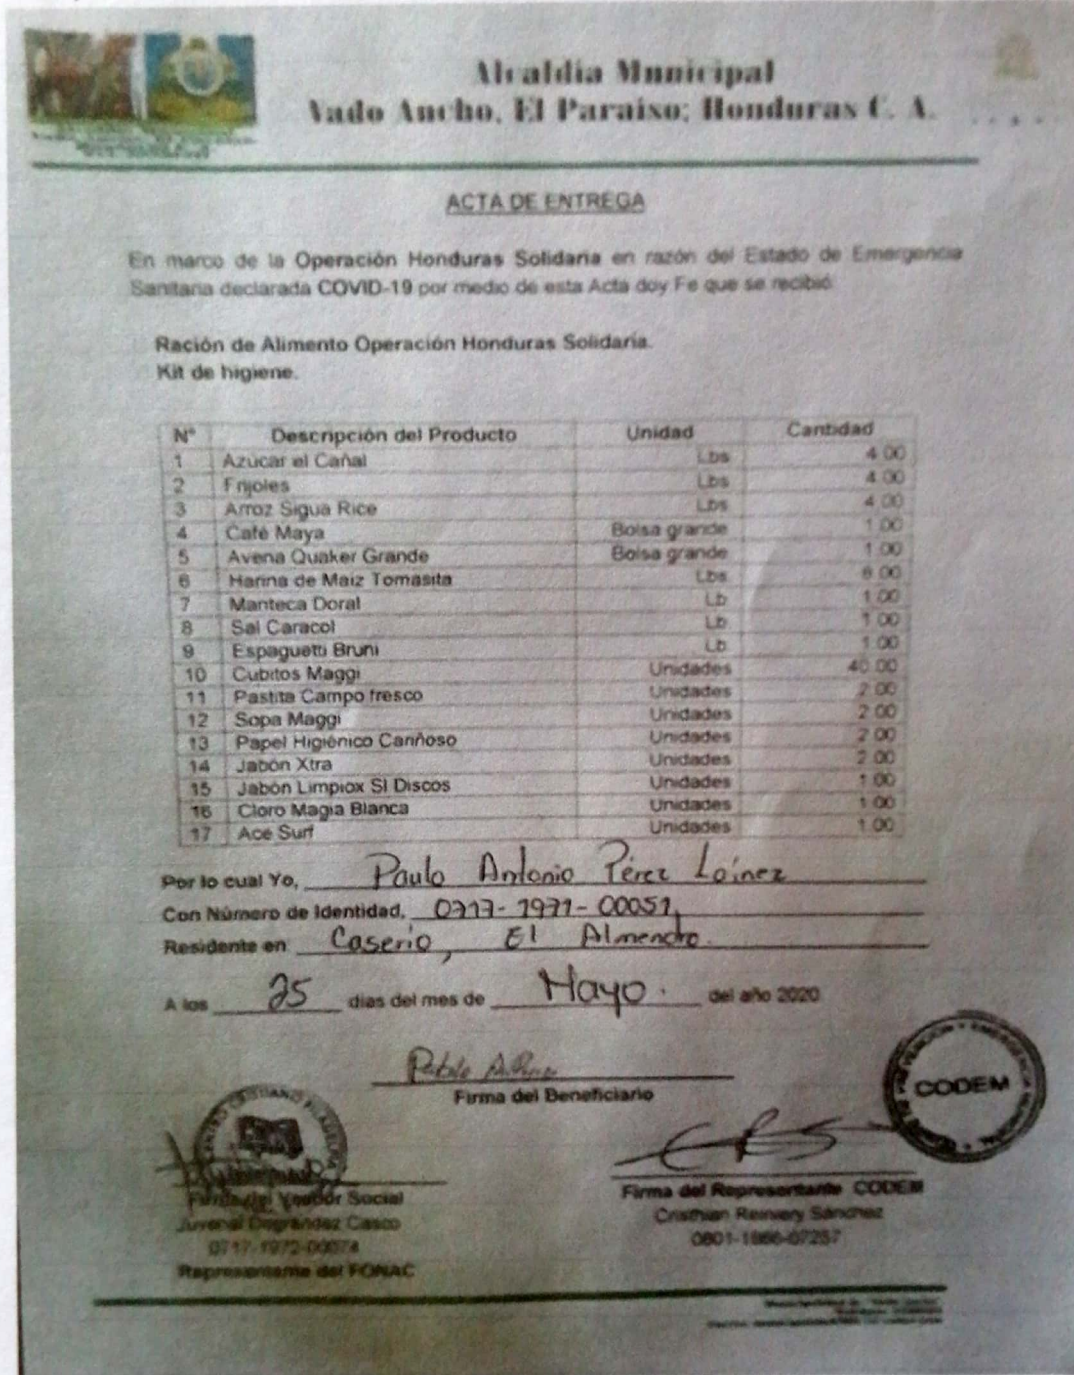 Alcaldia Municipal
Vado Ancho, El Paraiso; Honduras C. A.
ACTA DE ENTREGA
En marco de la Operación Honduras Solidaria en razón del Estado de Emergencia
Sanitaria declarada COVID-19 por medio de esta Acta doy Fe que se recibió
Ración de Alimento Operación Honduras Solidaria.
Kit de higiene.
N° Descripción del Producto Unidad Cantidad
1 Azúcar el Cañal Lbs 4.00
2 Frijoles Lbs 4.00
3 Arroz Sigua Rice Lbs 4.00
4 Café Maya Bolsa grande 1.00
5 Avena Quaker Grande Bolsa grande 1.00
6 Harina de Maiz Tomasita Lbs
7 Manteca Doral Lb 1.00
8 Sal Caracol Lb 1.00
9 Espaguetti Bruni Lb 1.00
10 Cubitos Maggi Unidades 40.00
11 Pastita Campo fresco Unidades 2.00
12 Sopa Maggi Unidades 2.00
13 Papel Higiénico Cariñoso Unidades 2.00
14 Jabón Xtra Unidades 2.00
15 Jabón Limpiox SI Discos Unidades 1.00
16 Cloro Magia Blanca Unidades 1.00
17 Ace Surf Unidades 1.00
Por lo cual Yo, Paulo Antonio Pérez Loínez
Con Número de Identidad, 0717-1971-00051,
Residente en Caserio, El Almendro.
A los 25 días del mes de Mayo. del año 2020
Firma del Beneficiario
CODEM
Firma del Veedor Social
Firma del Representante CODEM
Juvenal Casco
Cristhian Reiniery Sánchez
0717-1972-
0801-
Representante del FONAC